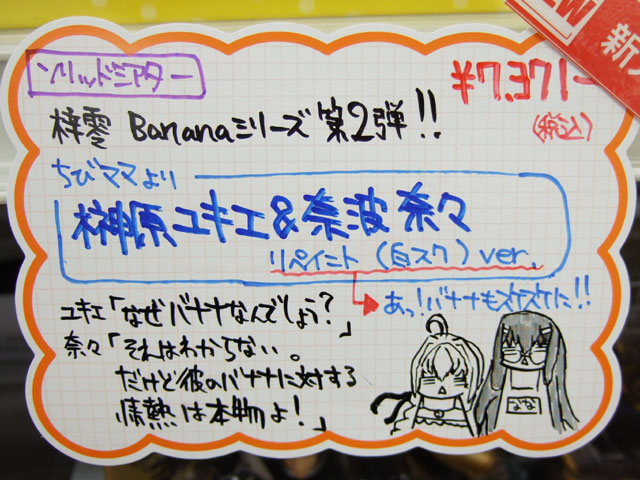 ソリッドシアター
¥7,371-
(税込)
梓零 Bananaシリーズ 第2弾!!
ちびママより
榊原ユキエ&奈波 奈々
リペイント (白スク) ver.
あっ!バナナもスケスケに!!
ユキエ「なぜバナナなんでしょう?」
奈々「それはわからない。
だけど彼のバナナに対する
情熱は本物よ!」
なな
NEW
新